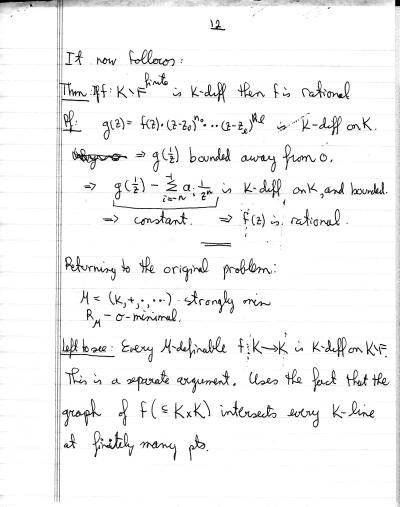 12
It now follows:
Thm: If f: K∖F^finite is K-diff then f is rational
Pf: g(z) = f(z)·(z-z_0)^{n_0}...(z-z_l)^{n_l} is K-diff on K.
⇒ g(1/z) bounded away from 0.
⇒ g(1/z) - Σ_{i=-n}^{-1} a_i 1/z^n is K-diff on K, and bounded.
⇒ constant. ⇒ f(z) is rational.
Returning to the original problem:
M = (K,+,·,...) strongly min
R_M - o-minimal.
Left to see: Every M-definable f: K→K is K-diff on K∖F.
This is a separate argument. Uses the fact that the
graph of f (⊆ K×K) intersects every K-line
at finitely many pts.